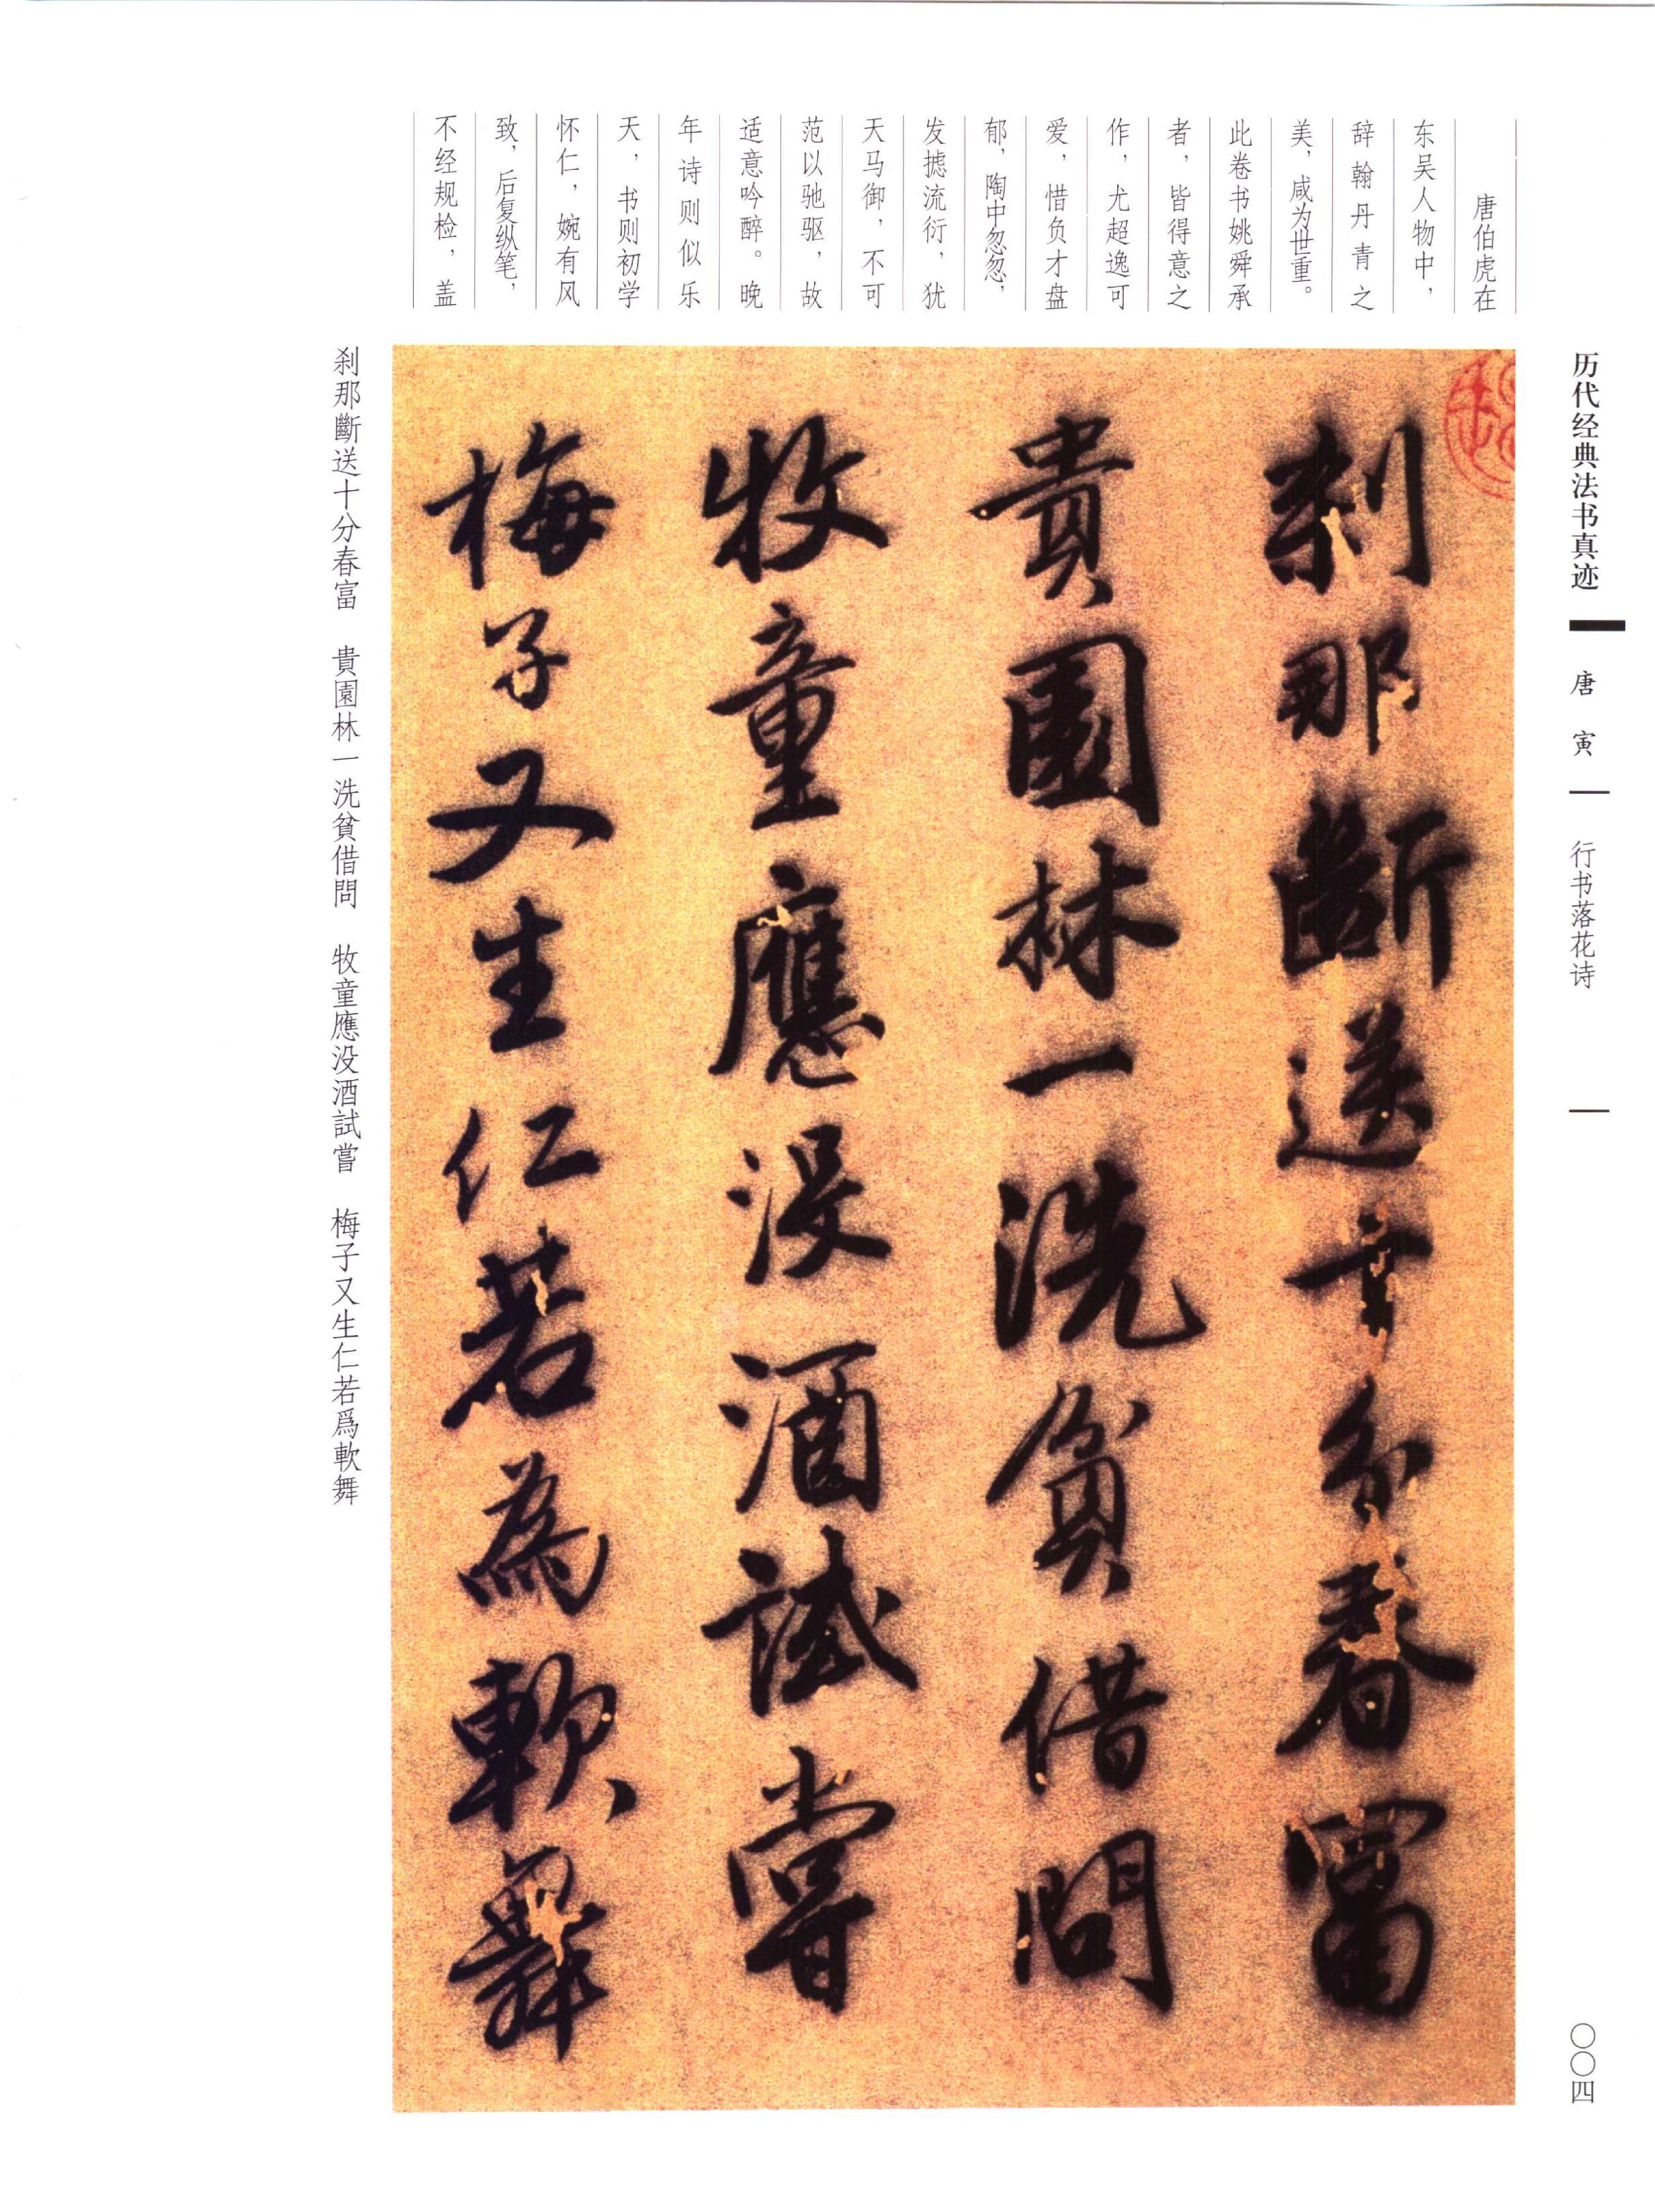 历代经典法书真迹
唐寅
行书落花诗
〇〇四
唐伯虎在
东吴人物中，
辞翰丹青之
美，咸为世重。
此卷书姚舜承
者，皆得意之
作，尤超逸可
爱，惜负才盘
郁，陶中忽忽，
发摅流衍，犹
天马御，不可
范以驰驱，故
适意吟醉。晚
年诗则似乐
天，书则初学
怀仁，婉有风
致，后复纵笔，
不经规检，盖
刹那斷送十分春富
貴園林一洗貧借問
牧童應没酒試嘗
梅子又生仁若為軟舞
刹那斷送十分春富　貴園林一洗貧借問　牧童應没酒試嘗　梅子又生仁若爲軟舞